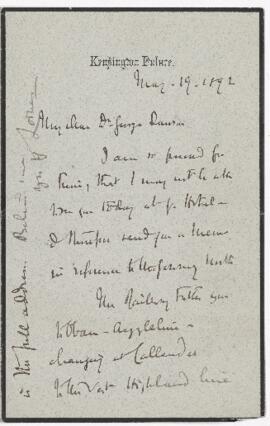 Kensington Palace.
May. 19. 1892
My dear Dr George Dawson
I am so pressed for
time, that I may not be able
to see you today at yr Hotel -
I therefore send you a memo
in reference to
The Railway takes you
to Oban - Argyllshire -
changing at Callander
to the West Highland line
is the full address. Believe me
yrs
Lorne